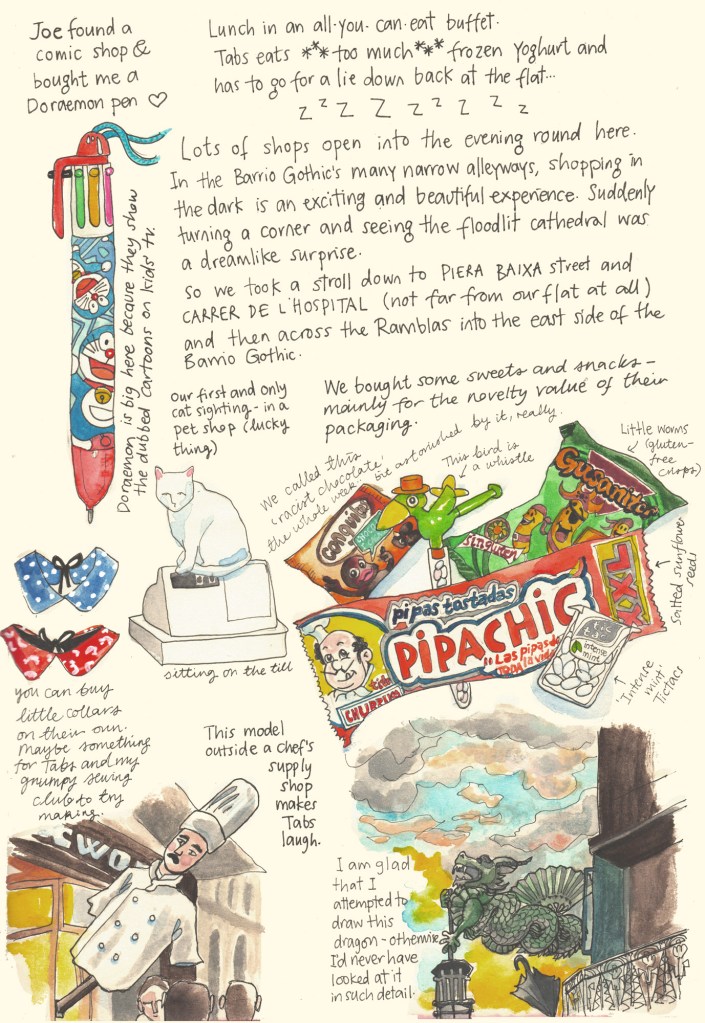 Joe found a
comic shop &
bought me a
Doraemon pen ♡
Lunch in an all.you.can.eat buffet.
Tabs eats *** too much *** frozen yoghurt and
has to go for a lie down back at the flat...
z z z z z z z z z
Lots of shops open into the evening round here.
In the Barrio Gothic's many narrow alleyways, shopping in
the dark is an exciting and beautiful experience. Suddenly
turning a corner and seeing the floodlit cathedral was
a dreamlike surprise.
So we took a stroll down to PIERA BAIXA street and
CARRER DE L'HOSPITAL (not far from our flat at all)
and then across the Ramblas into the east side of the
Barrio Gothic.
Doraemon is big here because they show
the dubbed cartoons on kids' tv.
our first and only
cat sighting - in a
pet shop (lucky
thing)
sitting on the till
We bought some sweets and snacks -
mainly for the novelty value of their
packaging.
We called this
'racist chocolate'
the whole week. but astonished by it, really.
This bird is
a whistle
Little worms
(gluten-
free
crisps)
Conguitos
Gusanitos
Sin Gluten
salted sunflower
seeds
pipas tostadas
PIPACHIC
"Las pipas de
TODA la vida
XXL
CHURRUCA
tic
tac
intense
mint
Intense
mint
Tictacs
you can buy
little collars
on their own.
Maybe something
for Tabs and my
grumpy sewing
club to try
making.
This model
outside a chef's
supply
shop
makes
Tabs
laugh.
I am glad
that I
attempted to
draw this
dragon - otherwise
I'd never have
looked at it
in such detail.